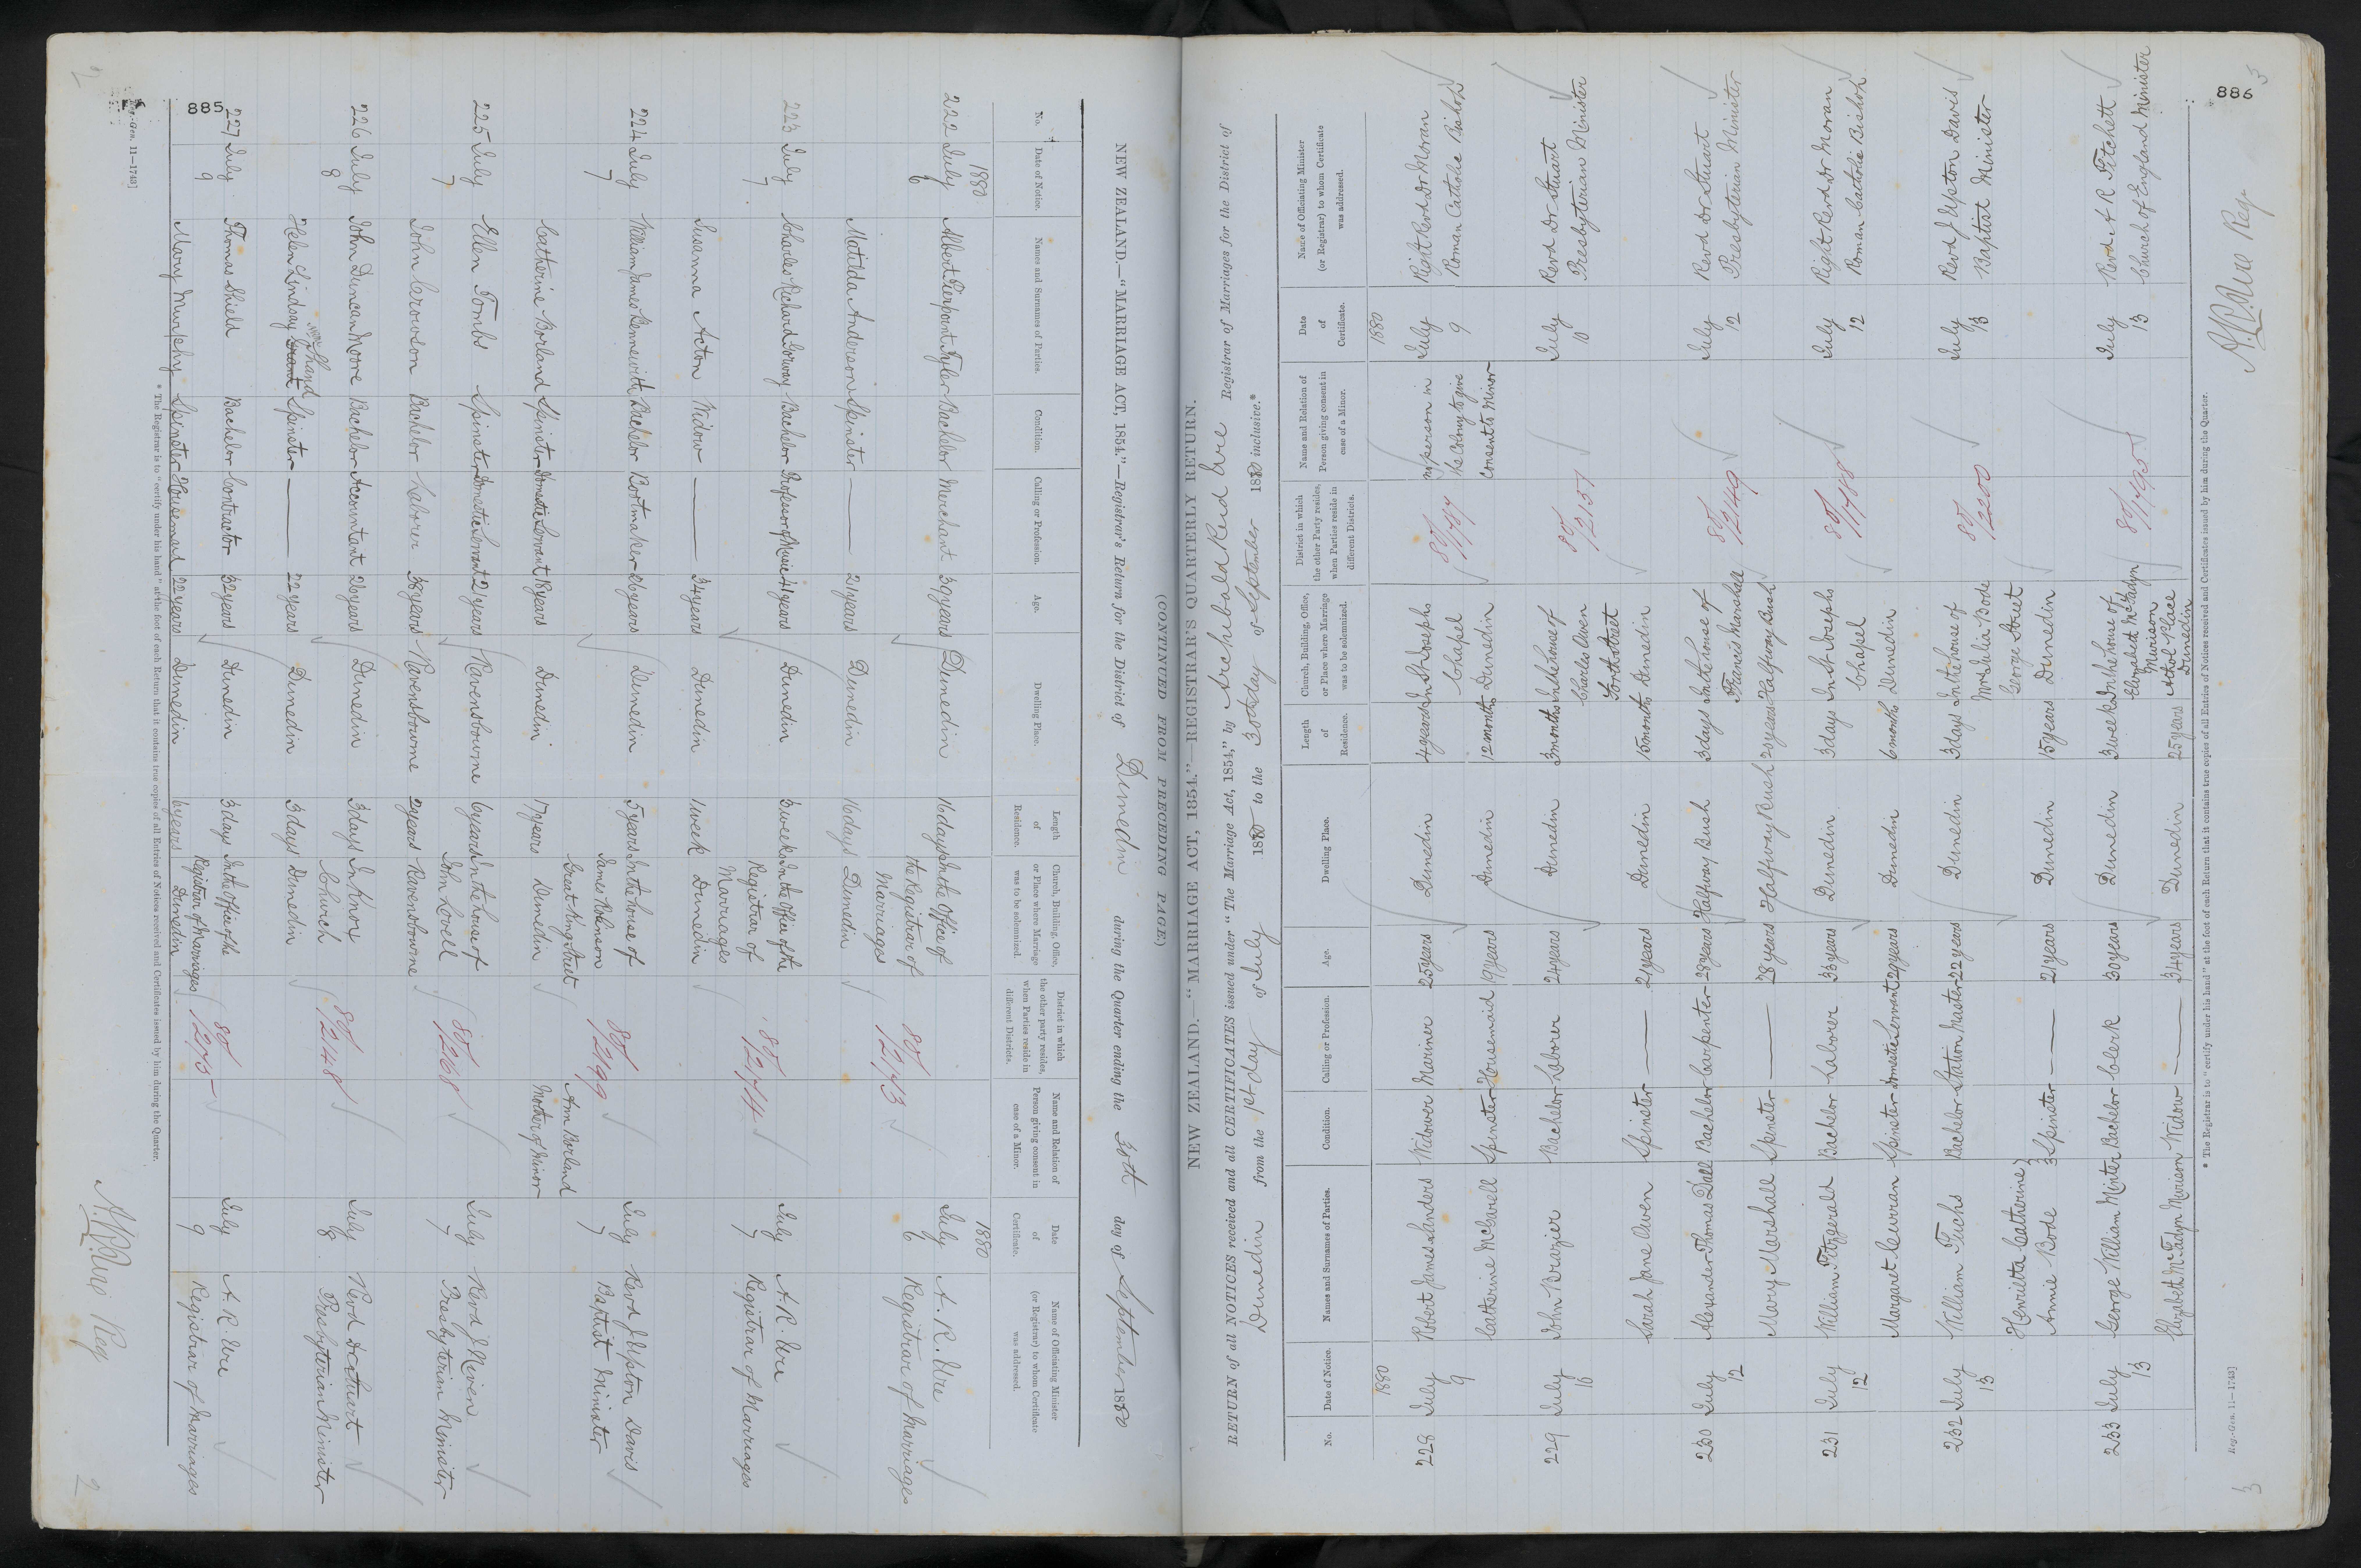 885
2
(CONTINUED FROM PRECEDING PAGE)
NEW ZEALAND.—"MARRIAGE ACT, 1854."—Registrar's Return for the District of Dunedin during the Quarter ending the 30th day of September 1880
No. Date of Notice. Names and Surnames of Parties. Condition. Calling or Profession. Age. Dwelling Place. Length of Residence. Church, Building, Office, or Place where Marriage was to be solemnized. District in which the other party resides, when Parties reside in different Districts. Name and Relation of Person giving consent in case of a Minor. Date of Certificate. Name of Officiating Minister (or Registrar) to whom Certificate was addressed.
1880 1880
222 July Albert Pierpoint Tyler Bachelor Merchant 30 years Dunedin 16 days In the Office of 80/2743 July A. R. Ure
6 the Registrar of 6 Registrar of Marriages
Marriages
Matilda Anderson Spinster — 21 years Dunedin 16 days Dunedin
223 July Charles Richard Gorway Bachelor Professor of Music 41 years Dunedin 3 weeks In the Office of the 80/2744 July A. R. Ure
7 Registrar of 7 Registrar of Marriages
Marriages
Susanna Acton Widow — 34 years Dunedin 1 week Dunedin
224 July William James Bootmaker 26 years Dunedin 5 years In the house of 80/2199 July Revd J Upton Davis
7 James Robinson 7 Baptist Minister
Great King Street Ann Borland
Catherine Borland Spinster Domestic Servant 18 years Dunedin 17 years Dunedin Mother of Minor
225 July Ellen Tombs Spinster Domestic Servant 21 years Ravensbourne 6 years In the house of 80/2268 July Revd J Niven
7 John Lovell 7 Presbyterian Minister
John Crowson Bachelor Laborer 38 years Ravensbourne 2 years Ravensbourne
226 July John Duncan Moore Bachelor Accountant 26 years Dunedin 3 days In Knox 80/2248 July Revd Dr Stuart
8 Church 8 Presbyterian Minister
Helen Lindsay Shand Spinster — 22 years Dunedin 3 days Dunedin
227 July Thomas Shield Bachelor Contractor 32 years Dunedin 3 days In the Office of the 80/2745 July A. R. Ure
9 Registrar of Marriages 9 Registrar of Marriages
Mary Murphy Spinster Housemaid 22 years Dunedin 6 years Dunedin
* The Registrar is to "certify under his hand" at the foot of each Return that it contains true copies of all Entries of Notices received and Certificates issued by him during the Quarter.
Reg.-Gen. 11—1743]
A. R. Ure Reg
2
886
3
NEW ZEALAND.—"MARRIAGE ACT, 1854."—REGISTRAR'S QUARTERLY RETURN.
RETURN of all NOTICES received and all CERTIFICATES issued under "The Marriage Act, 1854," by Archibald Reid Ure Registrar of Marriages for the District of
Dunedin from the 1st day of July 1880 to the 30th day of September 1880 inclusive.*
No. Date of Notice. Names and Surnames of Parties. Condition. Calling or Profession. Age. Dwelling Place. Length of Residence. Church, Building, Office, or Place where Marriage was to be solemnized. District in which the other Party resides, when Parties reside in different Districts. Name and Relation of Person giving consent in case of a Minor. Date of Certificate. Name of Officiating Minister (or Registrar) to whom Certificate was addressed.
1880 1880
228 July Robert James Sanders Widower Mariner 25 years Dunedin 4 years In St Josephs 80/1787 no person in July Right Revd Dr Moran
9 Chapel the Colony to give 9 Roman Catholic Bishop
Catherine McCarell Spinster Housemaid 19 years Dunedin 12 months Dunedin Consent to Minor
229 July John Brazier Bachelor Laborer 24 years Dunedin 3 months In the house of 80/2151 July Revd Dr Stuart
10 Charles Owen 10 Presbyterian Minister
Forth Street
Sarah Jane Owen Spinster — 21 years Dunedin 15 months Dunedin
230 July Alexander Thomas Dall Bachelor Carpenter 28 years Halfway Bush 3 days In the house of 80/2249 July Revd Dr Stuart
12 Francis Marshall 12 Presbyterian Minister
Mary Marshall Spinster — 28 years Halfway Bush 20 years Halfway Bush
231 July William Fitzgerald Bachelor Laborer 33 years Dunedin 3 days In St Josephs 80/1788 July Right Revd Dr Moran
12 Chapel 12 Roman Catholic Bishop
Margaret Curran Spinster Domestic Servant 29 years Dunedin 6 months Dunedin
232 July William Fuchs Bachelor Station Master 22 years Dunedin 3 days In the house of 80/2200 July Revd J Upton Davis
13 Mrs Julia Bode 13 Baptist Minister
Henrietta Catherine George Street
Annie Bode Spinster — 21 years Dunedin 15 years Dunedin
233 July George William Minter Bachelor Clerk 30 years Dunedin 3 weeks In the house of 80/1795 July Revd A R Fitchett
13 Elizabeth McFadyn 13 Church of England Minister
Murison
Athol Place
Elizabeth McFadyn Murison Widow — 34 years Dunedin 25 years Dunedin
* The Registrar is to "certify under his hand" at the foot of each Return that it contains true copies of all Entries of Notices received and Certificates issued by him during the Quarter.
Reg.-Gen. 11—1743]
A. R. Ure Reg
3